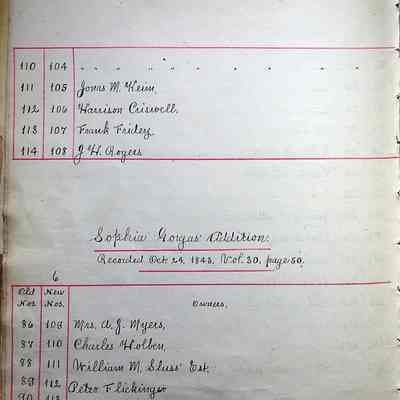 110 104 " " " " " " " " "
111 105 Jonas M. Keim,
112 106 Harrison Criswell,
113 107 Frank Fridey
114 108 J. H. Rogers
Sophia Gorgas' Addition.
Recorded Oct 24, 1843, Vol. 30, page 50.
6
Old New
Nos. Nos. Owners,
86 109 Mrs. A. J. Myers,
87 110 Charles Holben,
88 111 William M. Sluss' Est.
89 112 Peter Flickinger
90 113